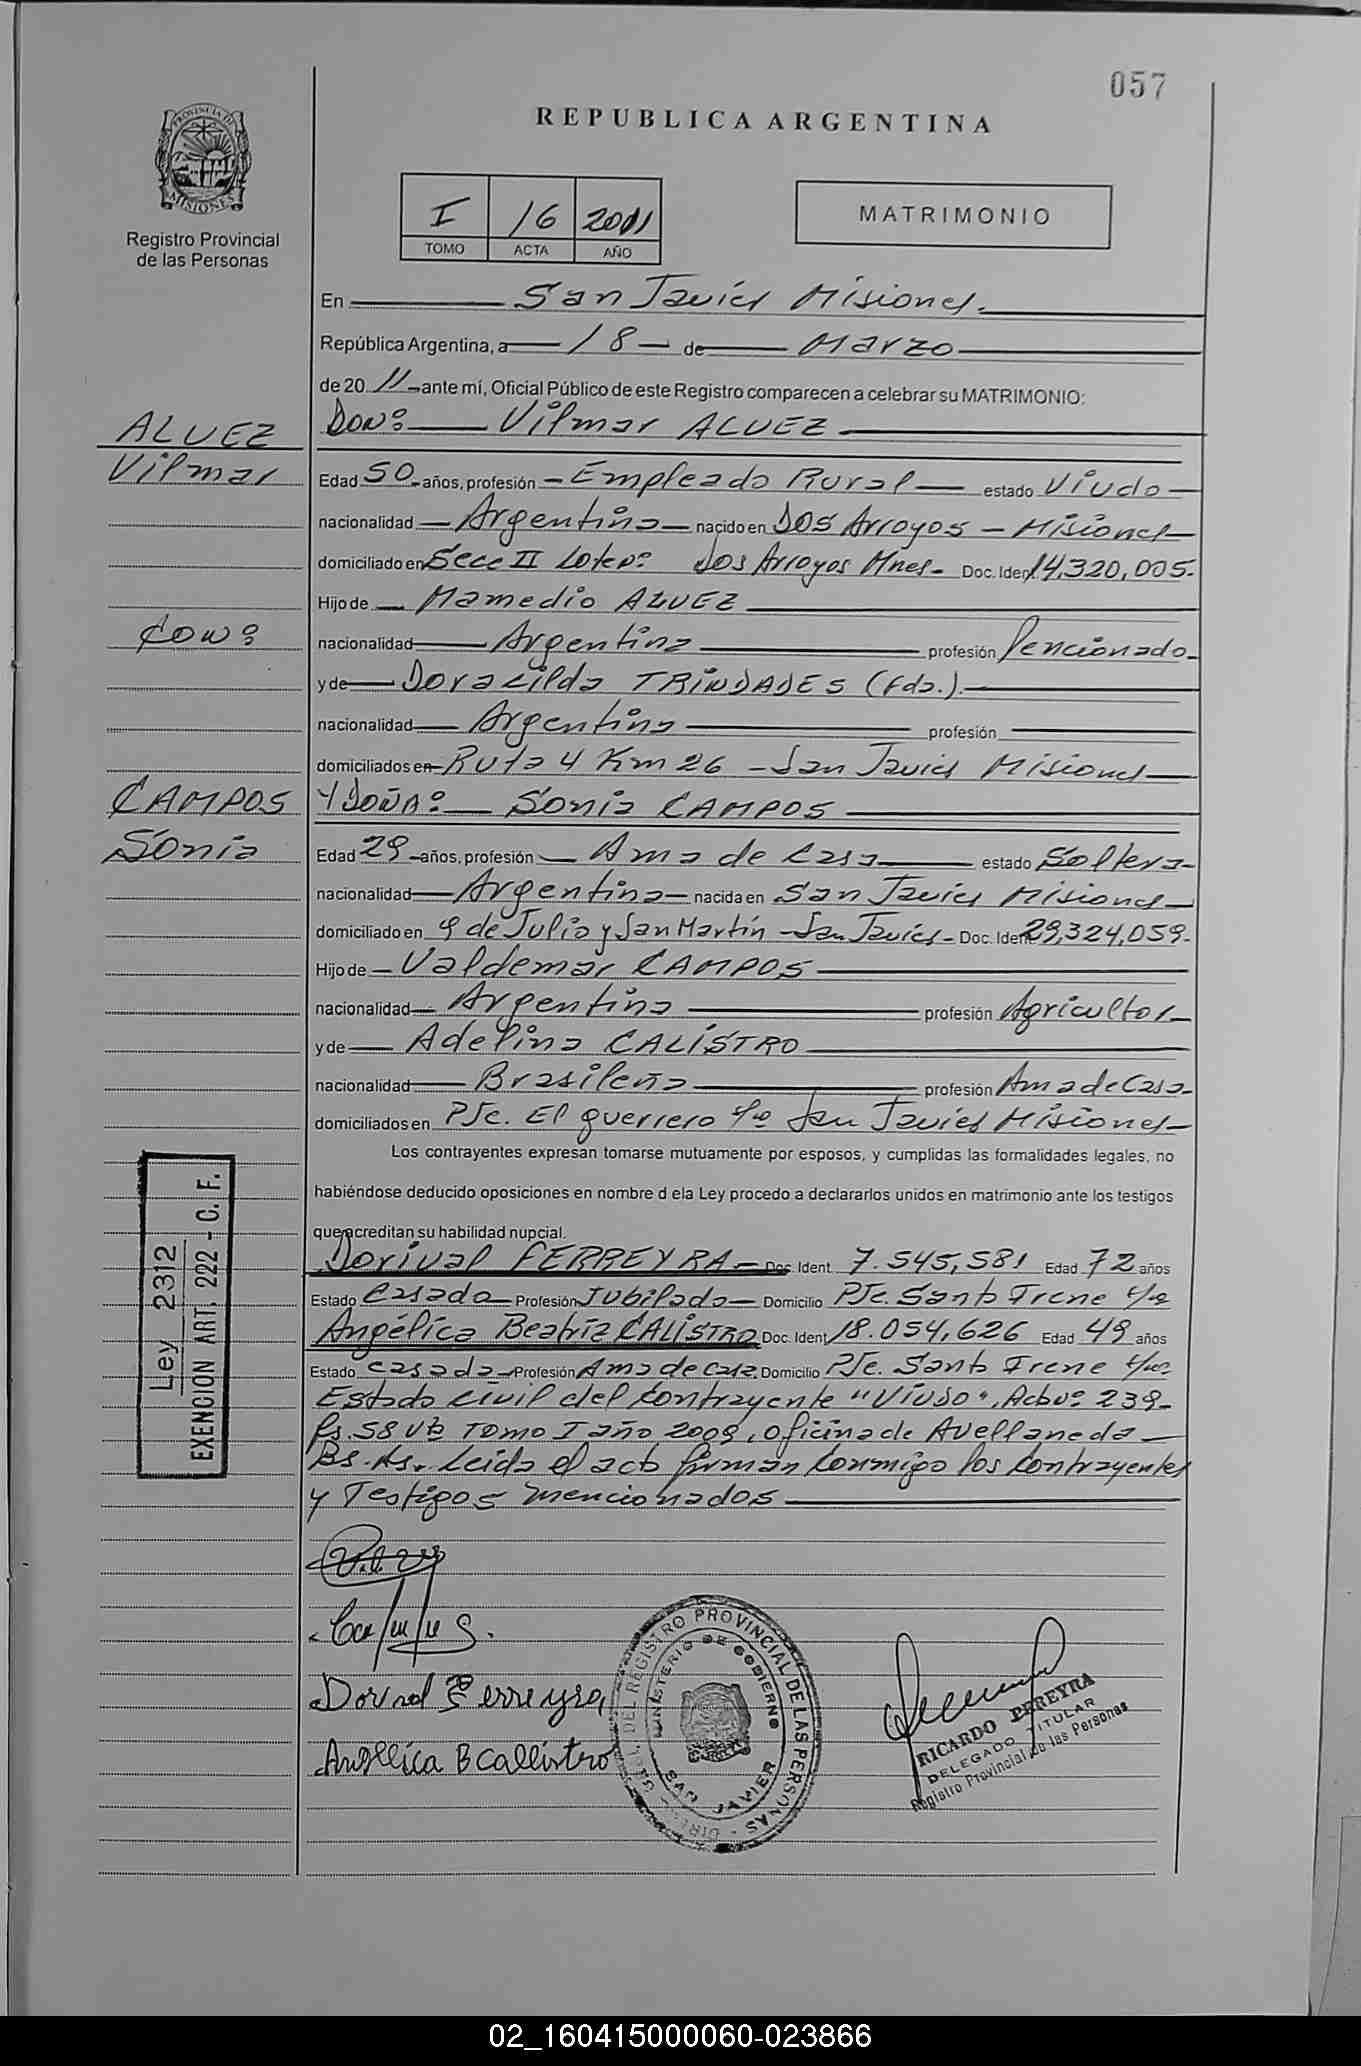 057
REPUBLICA ARGENTINA
PROVINCIA DE
MISIONES
Registro Provincial
de las Personas
I 16 2011
TOMO ACTA AÑO
MATRIMONIO
En San Javier Misiones.
República Argentina, a 18 de Marzo
de 20 11 ante mí, Oficial Público de este Registro comparecen a celebrar su MATRIMONIO:
ALVEZ
Vilmar
Con:
CAMPOS
Sonia
Don: Vilmar ALVEZ
Edad 50 años, profesión Empleado Rural estado Viudo
nacionalidad Argentina nacido en Dos Arroyos - Misiones
domiciliado en Secc II Dos Arroyos Mnes. Doc. Ident 14,320,005.
Hijo de Mamedio ALVEZ
nacionalidad Argentina profesión Pencionado
y de Doracilda TRINDADES (fda.).
nacionalidad Argentina profesión
domiciliados en Ruta 4 Km 26 - San Javier Misiones
Y DOÑA: Sonia CAMPOS
Edad 29 años, profesión Ama de Casa estado Soltera
nacionalidad Argentina nacida en San Javier Misiones
domiciliado en 9 de Julio y San Martín - San Javier - Doc. Ident 29,324,059.
Hijo de Valdemar CAMPOS
nacionalidad Argentina profesión Agricultor
y de Adelina CALISTRO
nacionalidad Brasileña profesión Ama de Casa
domiciliados en Pje. El guerrero San Javier Misiones
Los contrayentes expresan tomarse mutuamente por esposos, y cumplidas las formalidades legales, no
habiéndose deducido oposiciones en nombre d ela Ley procedo a declararlos unidos en matrimonio ante los testigos
que acreditan su habilidad nupcial.
Dorival FERREYRA Doc. Ident. 7.545,581 Edad 72 años
Estado Casado Profesión Jubilado Domicilio Pje. Santa Irene
Angélica Beatriz CALISTRO Doc. Ident 18.054,626 Edad 49 años
Estado casada Profesión Ama de casa Domicilio Pje. Santa Irene
Estado civil del Contrayente "Viudo", Acta Nº 239-
Fs. 58 Vta Tomo I año 2009, oficina de Avellaneda
Bs. As. Leida el acta firman conmigo los Contrayentes
y Testigos mencionados
Ley 2312
EXENCION ART. 222 - C. F.
Dorival Ferreyra
Angélica B Calistro
DEL REGISTRO PROVINCIAL DE LAS PERSONAS
MINISTERIO DE GOBIERNO
SAN JAVIER
RICARDO PEREYRA
DELEGADO TITULAR
Registro Provincial de las Personas
02_160415000060-023866